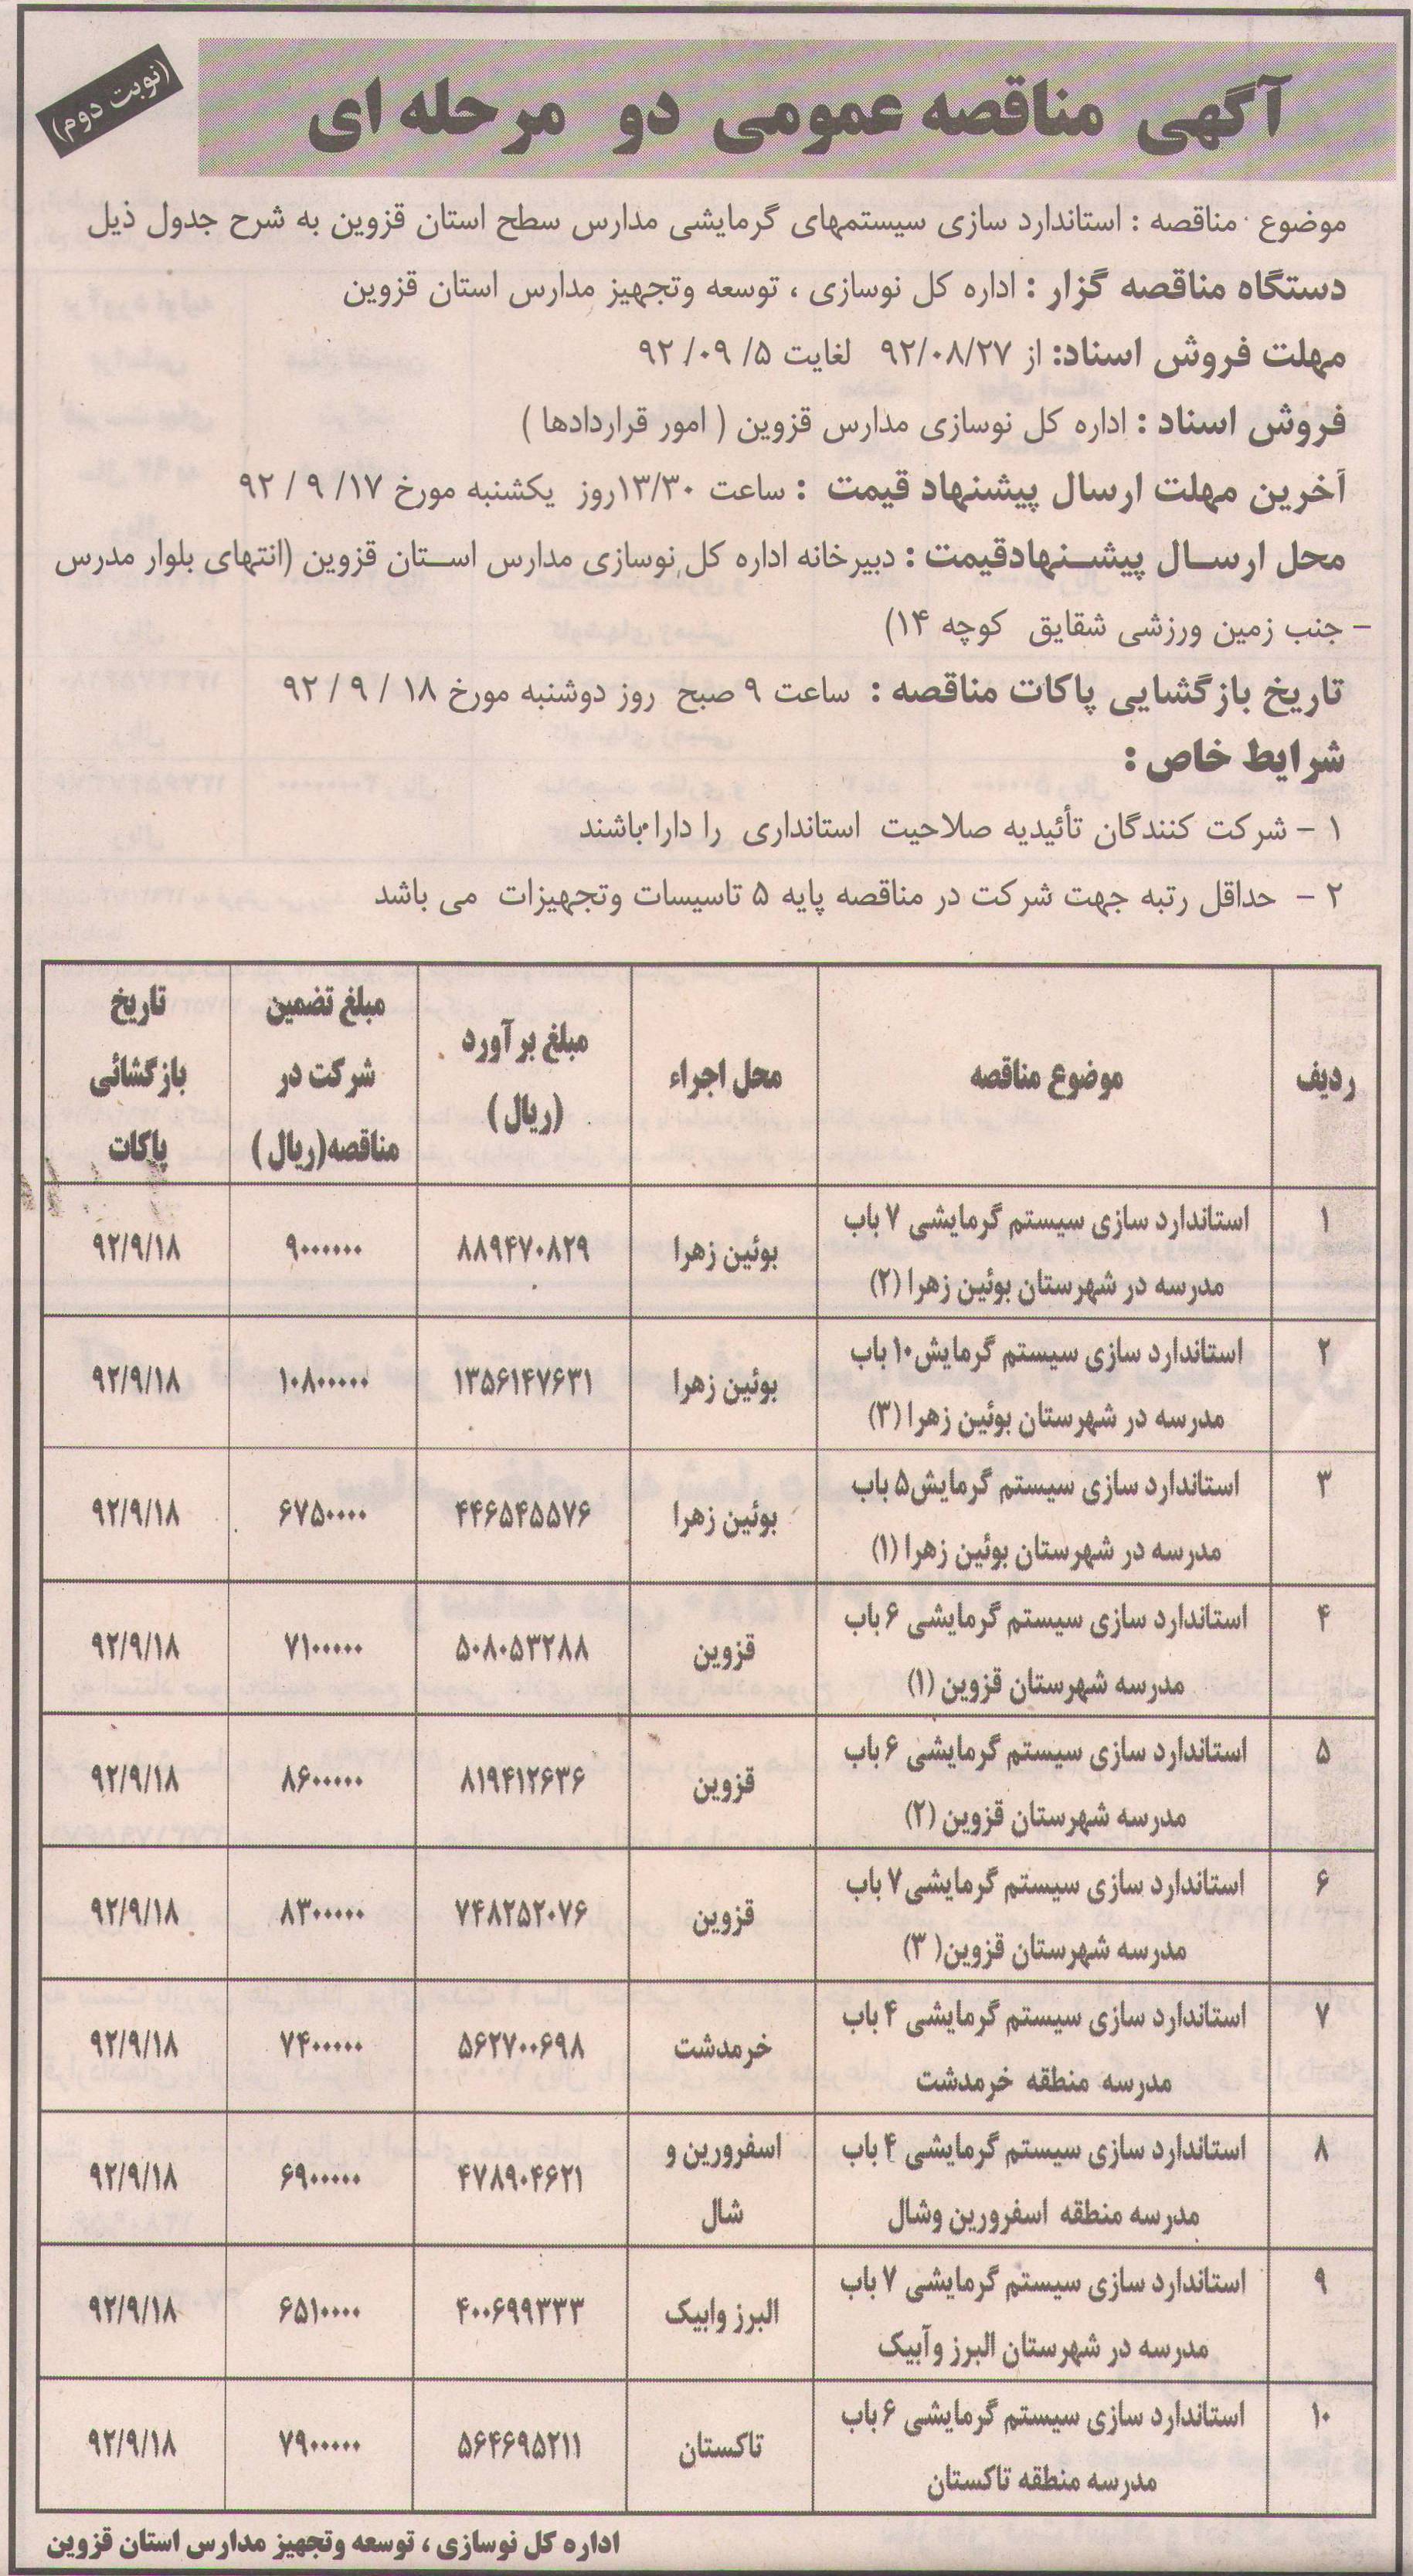 آگهی مناقصه عمومی دو مرحله ای
(نوبت دوم)
موضوع مناقصه : استاندارد سازی سیستمهای گرمایشی مدارس سطح استان قزوین به شرح جدول ذیل
دستگاه مناقصه گزار : اداره کل نوسازی ، توسعه وتجهیز مدارس استان قزوین
مهلت فروش اسناد: از ۹۲/۰۸/۲۷ لغایت ۵/ ۰۹/ ۹۲
فروش اسناد : اداره کل نوسازی مدارس قزوین ( امور قراردادها )
آخرین مهلت ارسال پیشنهاد قیمت : ساعت ۱۳/۳۰روز یکشنبه مورخ ۱۷/ ۹ / ۹۲
محل ارسال پیشنهادقیمت : دبیرخانه اداره کل نوسازی مدارس استان قزوین (انتهای بلوار مدرس
– جنب زمین ورزشی شقایق کوچه ۱۴)
تاریخ بازگشایی پاکات مناقصه : ساعت ۹ صبح روز دوشنبه مورخ ۱۸ / ۹ / ۹۲
شرایط خاص :
۱ – شرکت کنندگان تأئیدیه صلاحیت استانداری را دارا باشند
۲ – حداقل رتبه جهت شرکت در مناقصه پایه ۵ تاسیسات وتجهیزات می باشد
ردیف موضوع مناقصه محل اجراء مبلغ برآورد (ریال) مبلغ تضمین شرکت در مناقصه(ریال) تاریخ بازگشائی پاکات
۱ استاندارد سازی سیستم گرمایشی ۷ باب بوئین زهرا ۸۸۹۴۷۰۸۲۹ ۹۰۰۰۰۰۰ ۹۲/۹/۱۸
مدرسه در شهرستان بوئین زهرا (۲)
۲ استاندارد سازی سیستم گرمایش۱۰ باب بوئین زهرا ۱۳۵۶۱۴۷۶۳۱ ۱۰۸۰۰۰۰۰ ۹۲/۹/۱۸
مدرسه در شهرستان بوئین زهرا (۳)
۳ استاندارد سازی سیستم گرمایش۵ باب بوئین زهرا ۴۴۶۵۴۵۵۷۶ ۶۷۵۰۰۰۰ ۹۲/۹/۱۸
مدرسه در شهرستان بوئین زهرا (۱)
۴ استاندارد سازی سیستم گرمایشی ۶ باب قزوین ۵۰۸۰۵۳۲۸۸ ۷۱۰۰۰۰۰ ۹۲/۹/۱۸
مدرسه شهرستان قزوین (۱)
۵ استاندارد سازی سیستم گرمایشی ۶ باب قزوین ۸۱۹۴۱۲۶۳۶ ۸۶۰۰۰۰۰ ۹۲/۹/۱۸
مدرسه شهرستان قزوین (۲)
۶ استاندارد سازی سیستم گرمایشی۷ باب قزوین ۷۴۸۲۵۲۰۷۶ ۸۳۰۰۰۰۰ ۹۲/۹/۱۸
مدرسه شهرستان قزوین( ۳)
۷ استاندارد سازی سیستم گرمایشی ۴ باب خرمدشت ۵۶۲۷۰۰۶۹۸ ۷۴۰۰۰۰۰ ۹۲/۹/۱۸
مدرسه منطقه خرمدشت
۸ استاندارد سازی سیستم گرمایشی ۴ باب اسفرورین و شال ۴۷۸۹۰۴۶۲۱ ۶۹۰۰۰۰۰ ۹۲/۹/۱۸
مدرسه منطقه اسفرورین وشال
۹ استاندارد سازی سیستم گرمایشی ۷ باب البرز وابیک ۴۰۰۶۹۹۳۳۳ ۶۵۱۰۰۰۰ ۹۲/۹/۱۸
مدرسه در شهرستان البرز وآبیک
۱۰ استاندارد سازی سیستم گرمایشی ۶ باب تاکستان ۵۶۴۶۹۵۲۱۱ ۷۹۰۰۰۰۰ ۹۲/۹/۱۸
مدرسه منطقه تاکستان
اداره کل نوسازی ، توسعه وتجهیز مدارس استان قزوین